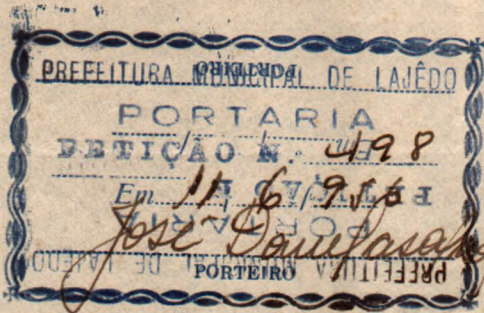 PREFEITURA MUNICIPAL DE LAJÊDO
PORTARIA
PETIÇÃO N. 498
Em 11/6/956
José
PORTEIRO